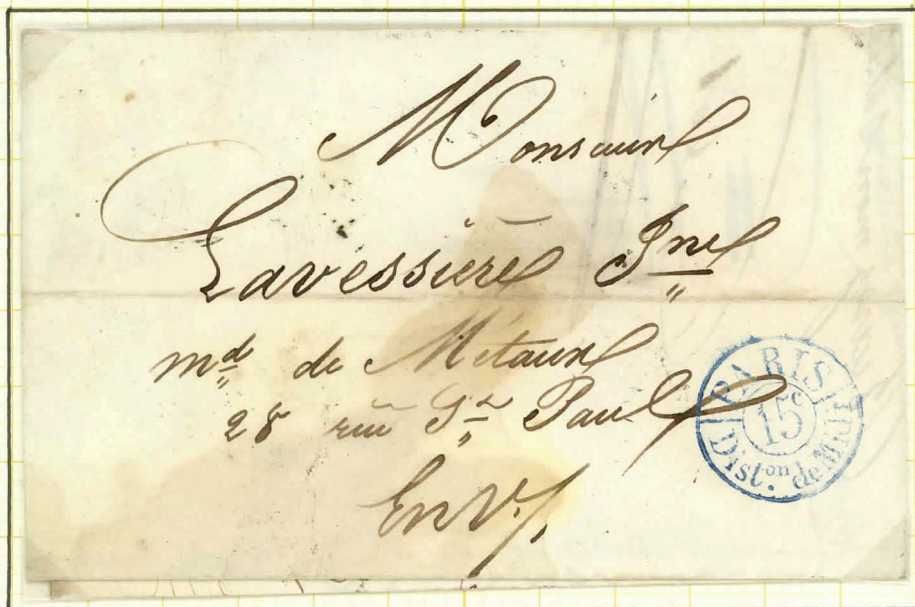 Monsieur
Lavessière Jne
md de Métaux
28 rue St Paul
EnV/.
PARIS
15c
Diston. de MIDI